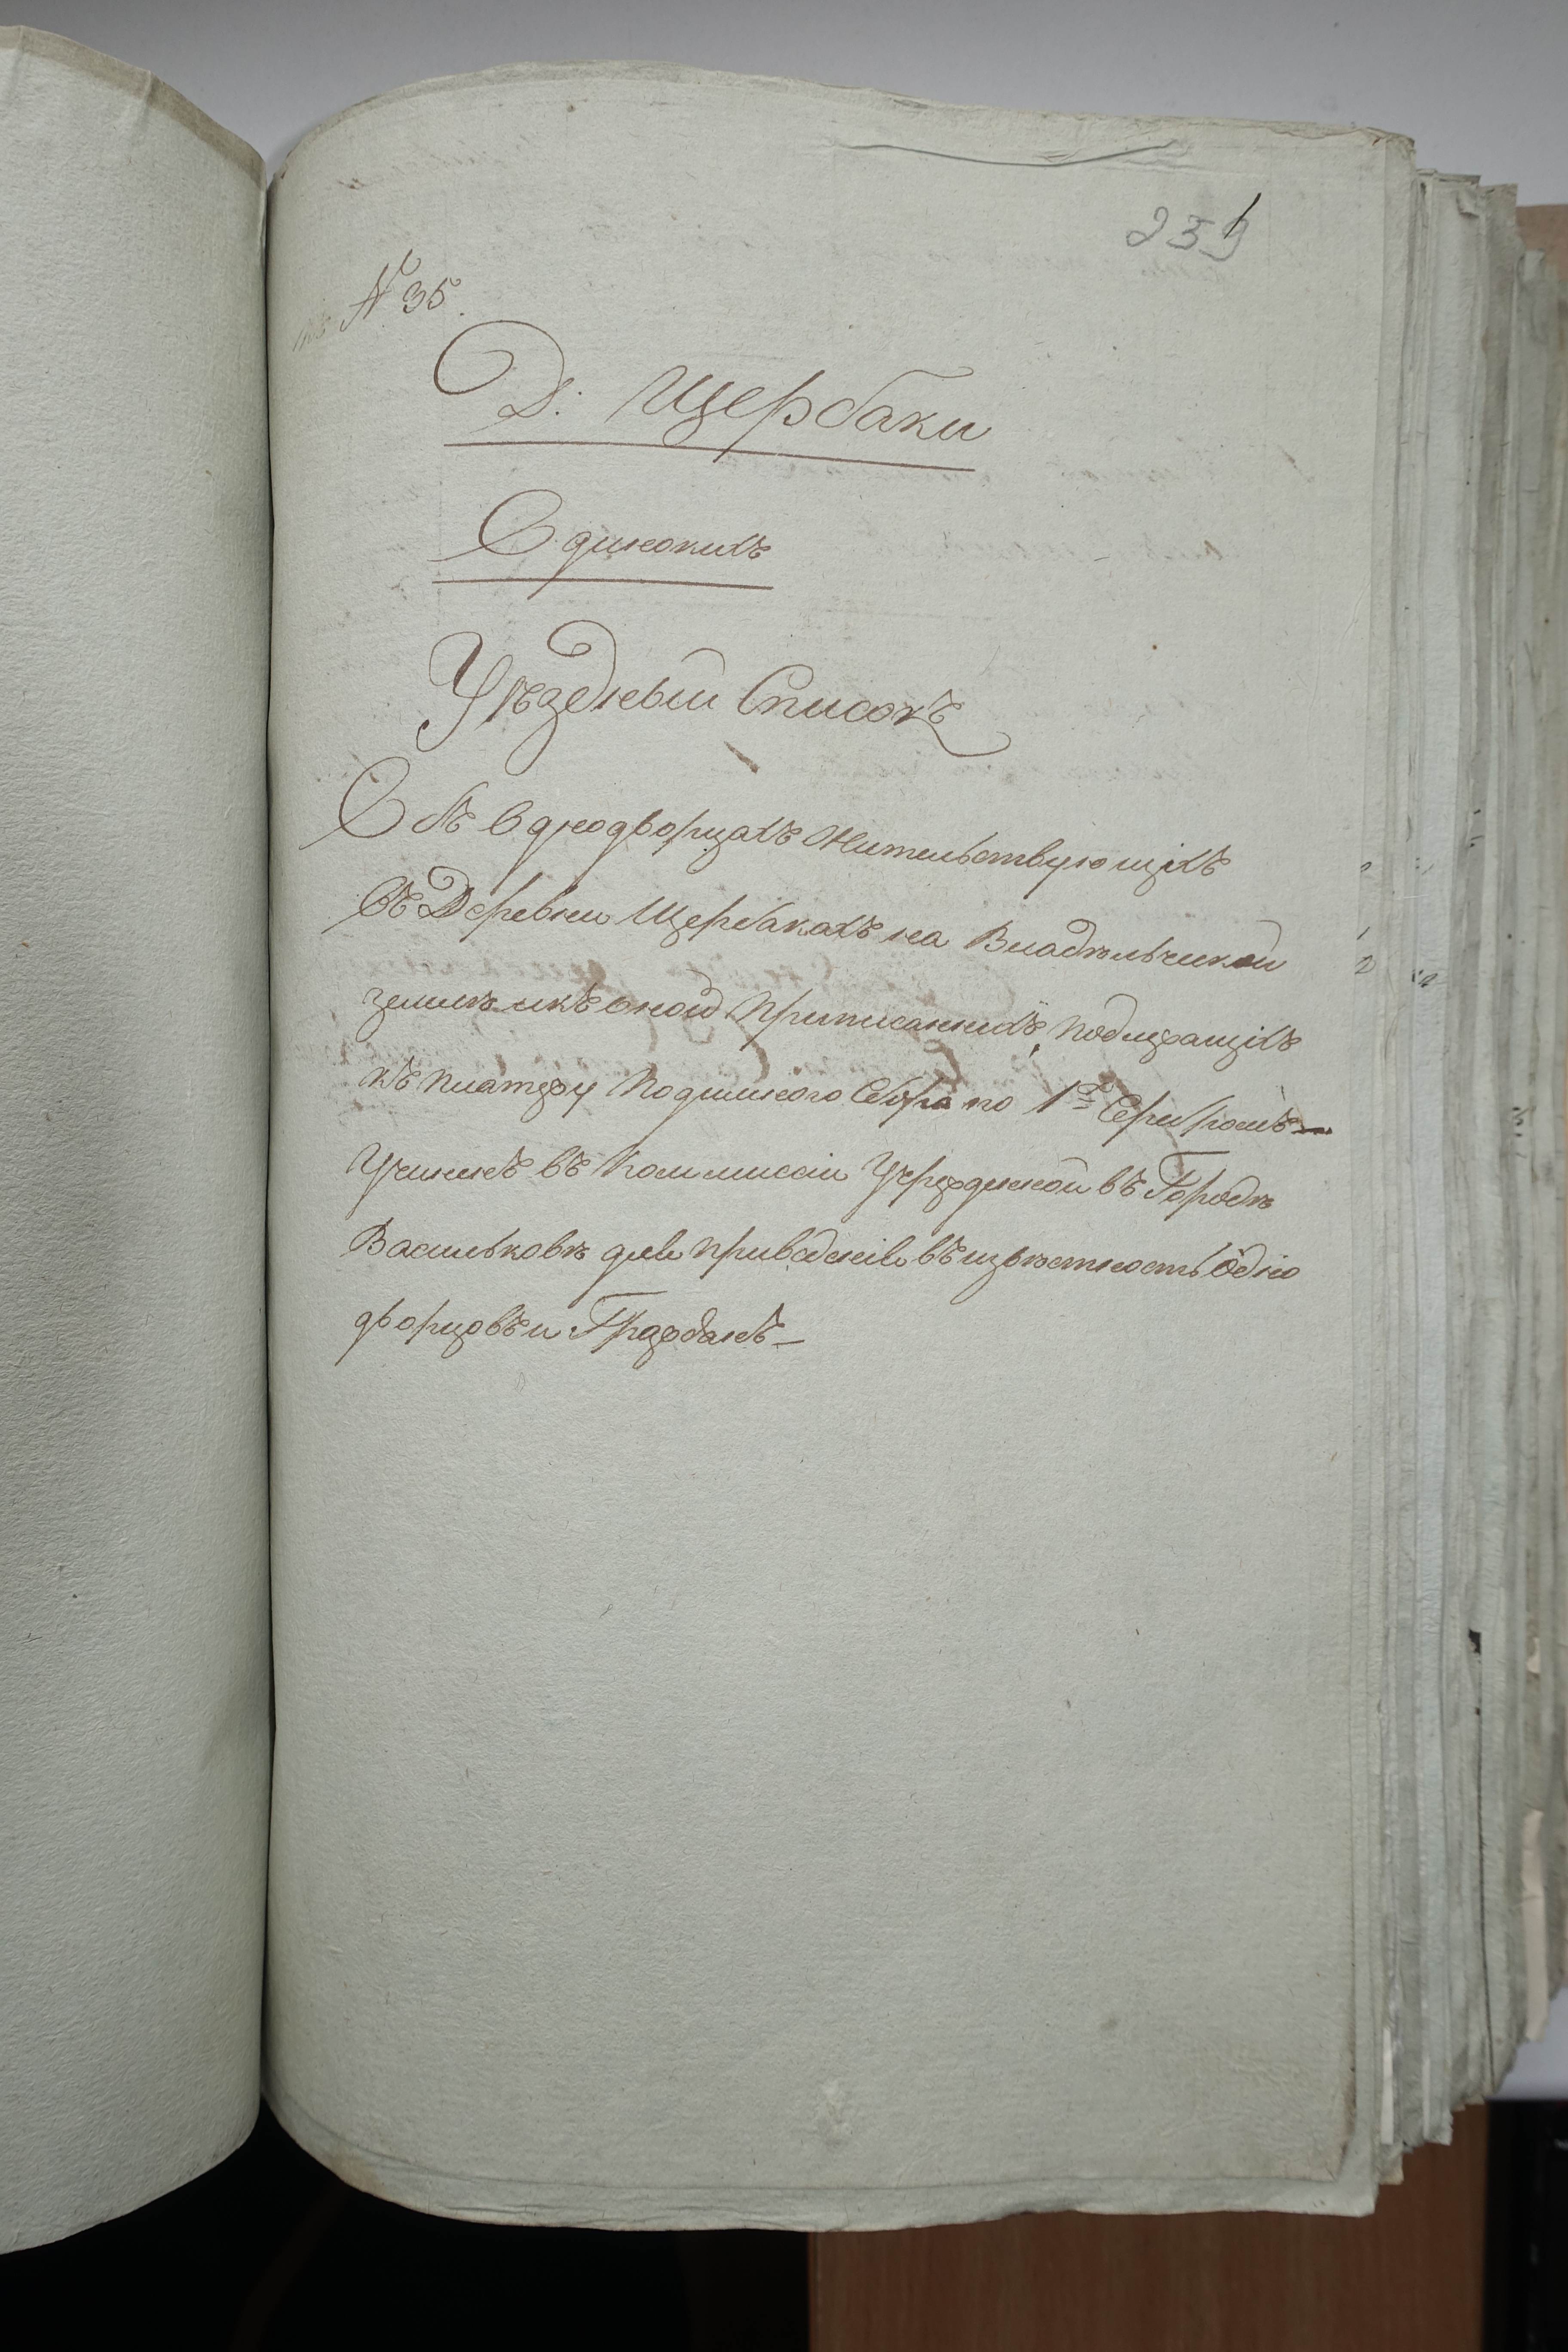 № 35.
Д: Щербаки
Одинокихъ
Уѣздный Списокъ
Объ Однодворцахъ Жительствующихъ
Въ Деревни Щербакахъ на Владѣльческой
землѣ икъ оной приписанныхъ, подлежащихъ
къ платежу Подымного Сбора по 1 Серебромъ —
Учиненъ въ Коммиссіи Учрежденной въ Городѣ
Васильковѣ для приведенія въ извѣстность Одно
дворцовъ и Гражданъ —